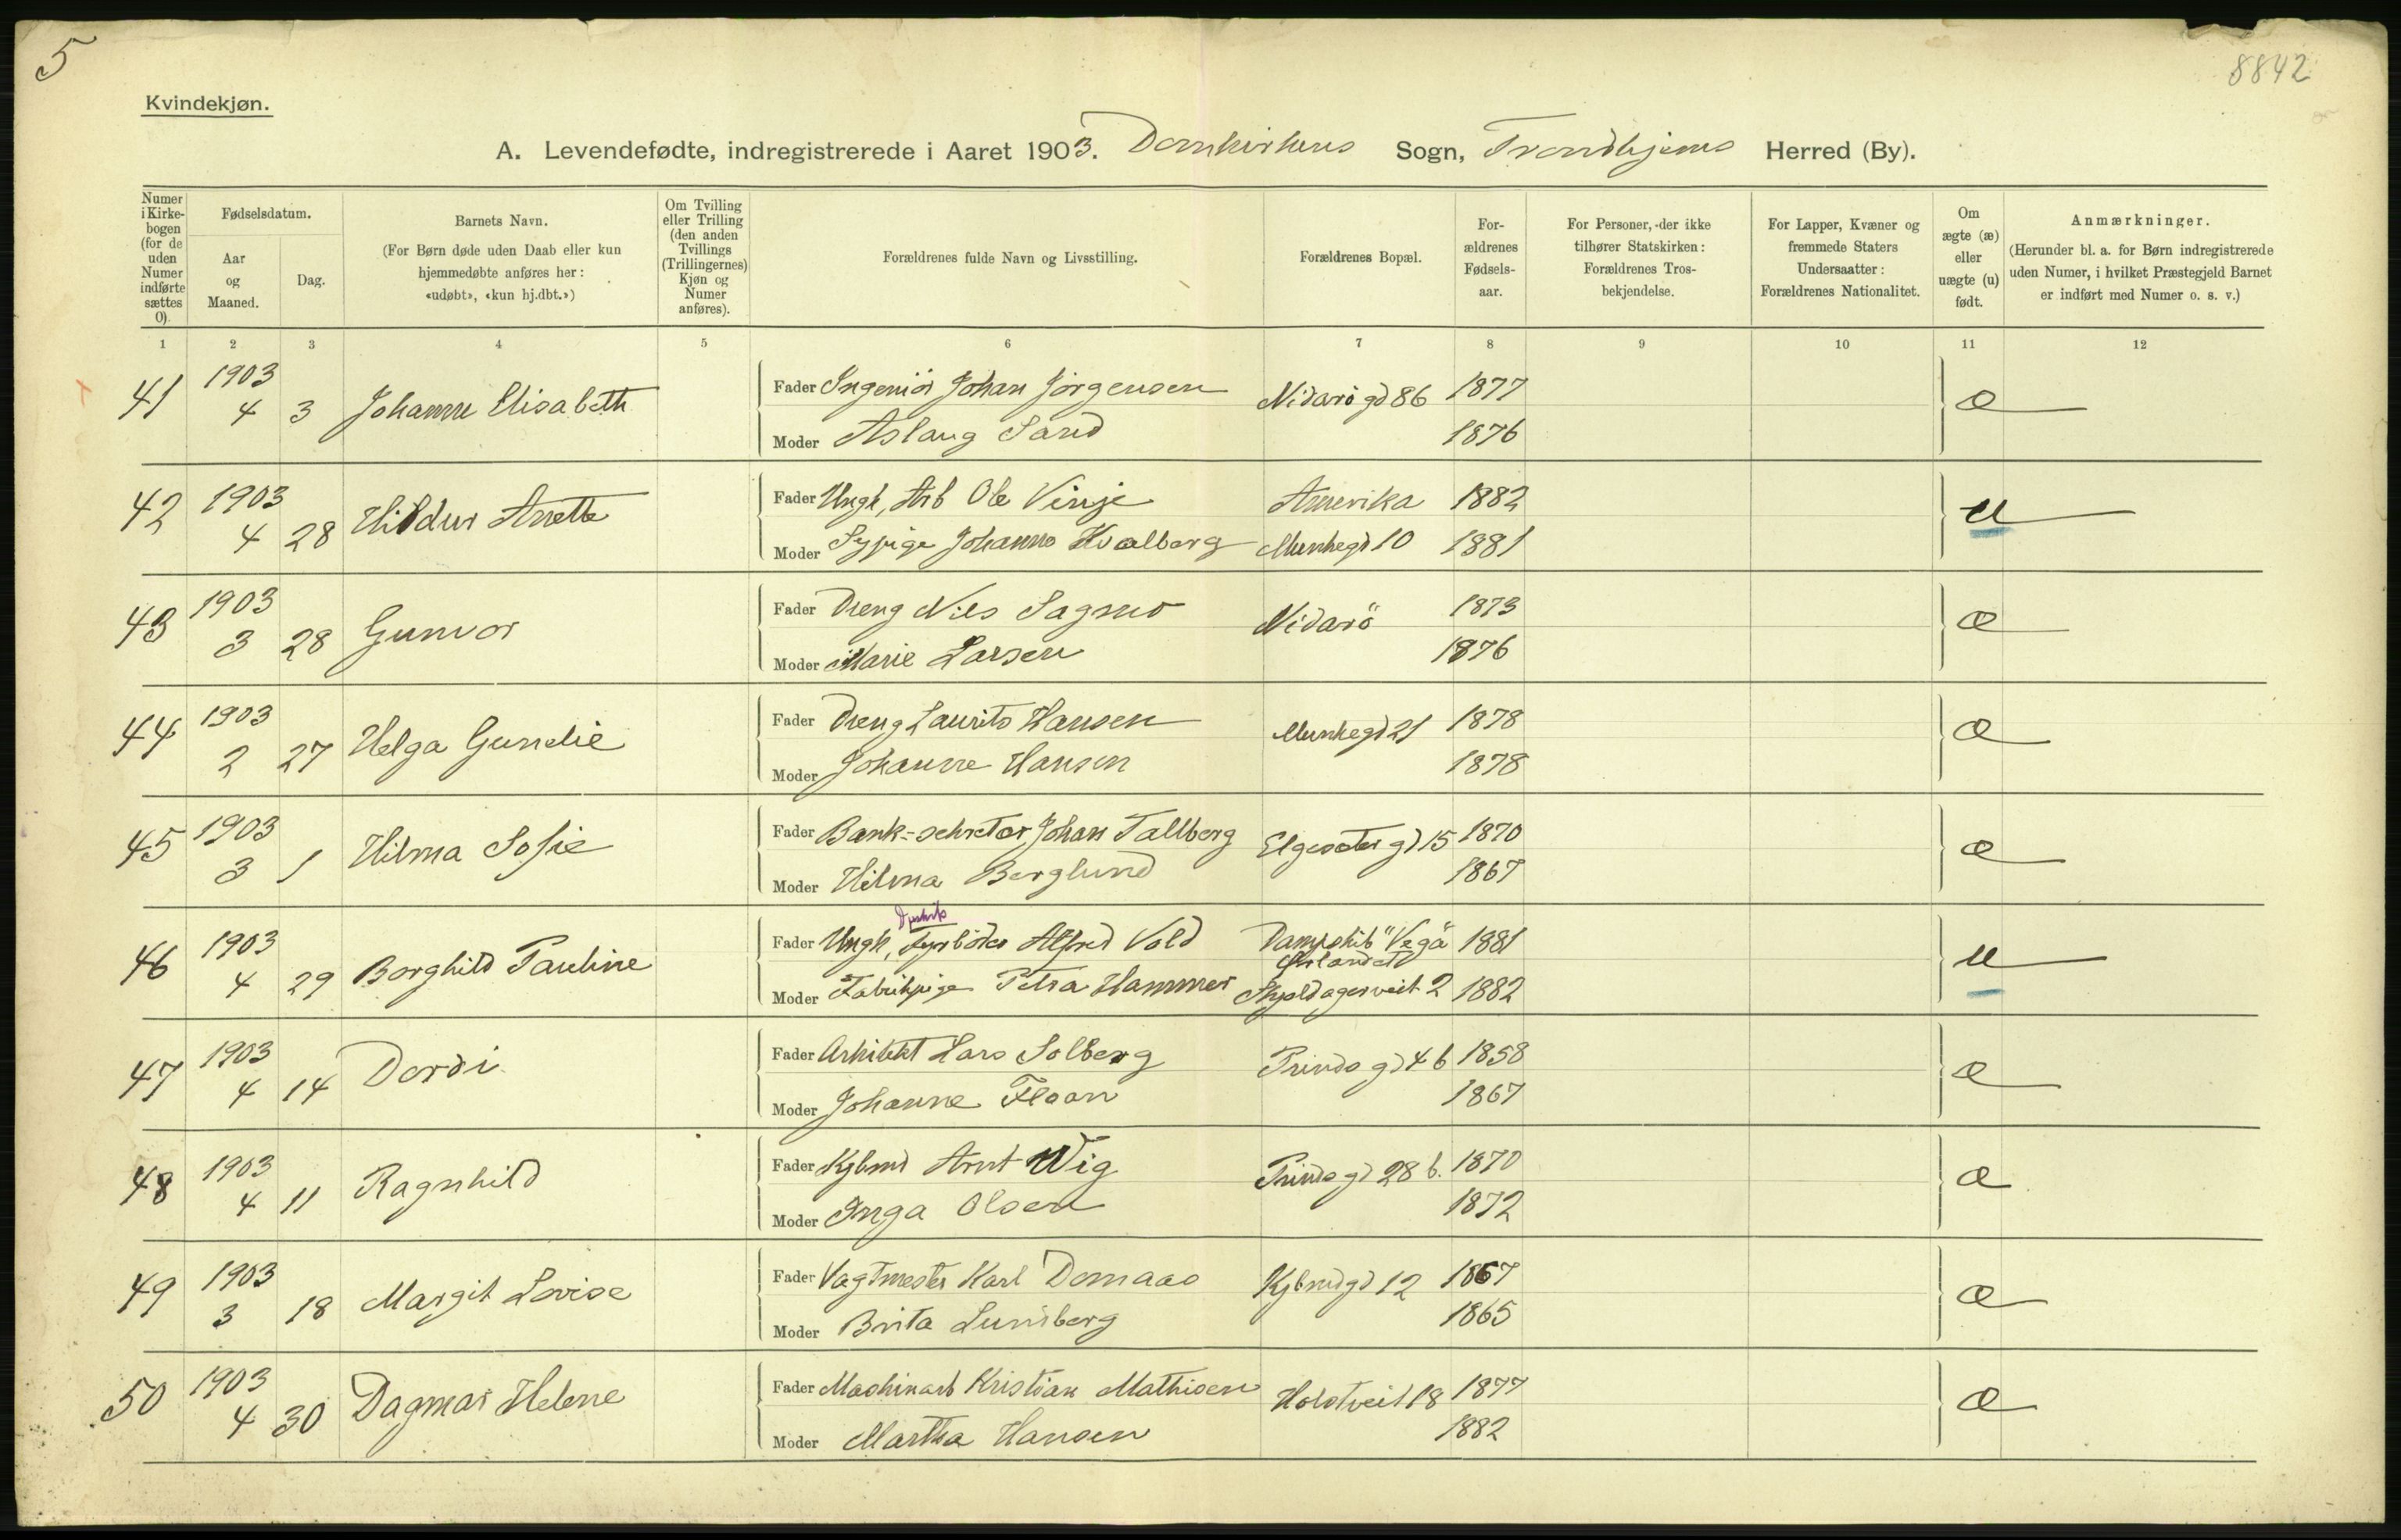 5
8842
Kvindekjøn.
A. Levendefødte, indregistrerede i Aaret 1903. Domkirkens Sogn, Trondhjems Herred (By).
Numer i Kirke-bogen (for de uden Numer indførte sættes 0).
Fødselsdatum.
Aar og Maaned.
Dag.
Barnets Navn.
(For Børn døde uden Daab eller kun hjemmedøbte anføres her: «udøbt», «kun hj.dbt.»)
Om Tvilling eller Trilling (den anden Tvillings (Trillingernes) Kjøn og Numer anføres).
Forældrenes fulde Navn og Livsstilling.
Forældrenes Bopæl.
For-ældrenes Fødsels-aar.
For Personer, der ikke tilhører Statskirken: Forældrenes Tros-bekjendelse.
For Lapper, Kvæner og fremmede Staters Undersaatter: Forældrenes Nationalitet.
Om ægte (æ) eller uægte (u) født.
Anmærkninger.
(Herunder bl. a. for Børn indregistrerede uden Numer, i hvilket Præstegjeld Barnet er indført med Numer o. s. v.)
1 2 3 4 5 6 7 8 9 10 11 12
41 1903 4 3 Johanne Elisabeth Fader Ingeniör Johan Jörgensen Nidarö gd 86 1877 æ
Moder Aslaug Sand 1876
42 1903 4 28 Hildur Anette Fader Ungk, Arb Ole Vinje Amerika 1882 u
Moder Sypige Johanna Hvalberg Munkegd 10 1881
43 1903 3 28 Gunvor Fader Dreng Nils Sagmo Nidarö 1873 æ
Moder Marie Larsen 1876
44 1903 2 27 Helga Gundie Fader Dreng Laurits Hansen Munkegd 21 1878 æ
Moder Johanne Hansen 1878
45 1903 3 1 Hilma Sofie Fader Bank-sekretær, Johan Tallberg Elgesæter gd 15 1870 æ
Moder Hilma Berglund 1867
46 1903 4 29 Borghild Pauline Fader Ungk, Fyrböder Alfred Vold Dampskib "Vega" 1881 u
Moder Fabrikpige Petra Hammer Skjoldagerveit 2 1882
47 1903 4 14 Dordi Fader Arkitekt Lars Solberg Prinds gd 4 b 1858 æ
Moder Johanne Floan 1867
48 1903 4 11 Ragnhild Fader Kjbmd Arnt Wig Prinds gd 28 b. 1870 æ
Moder Inga Olsen 1872
49 1903 3 18 Margit Lovise Fader Vagtmester Karl Domaas Kjbmdgd 12 1867 æ
Moder Brita Lundberg 1865
50 1903 4 30 Dagmar Helene Fader Maskinarb Kristian Mathisen Holstveit 18 1877 æ
Moder Martha Hansen 1882